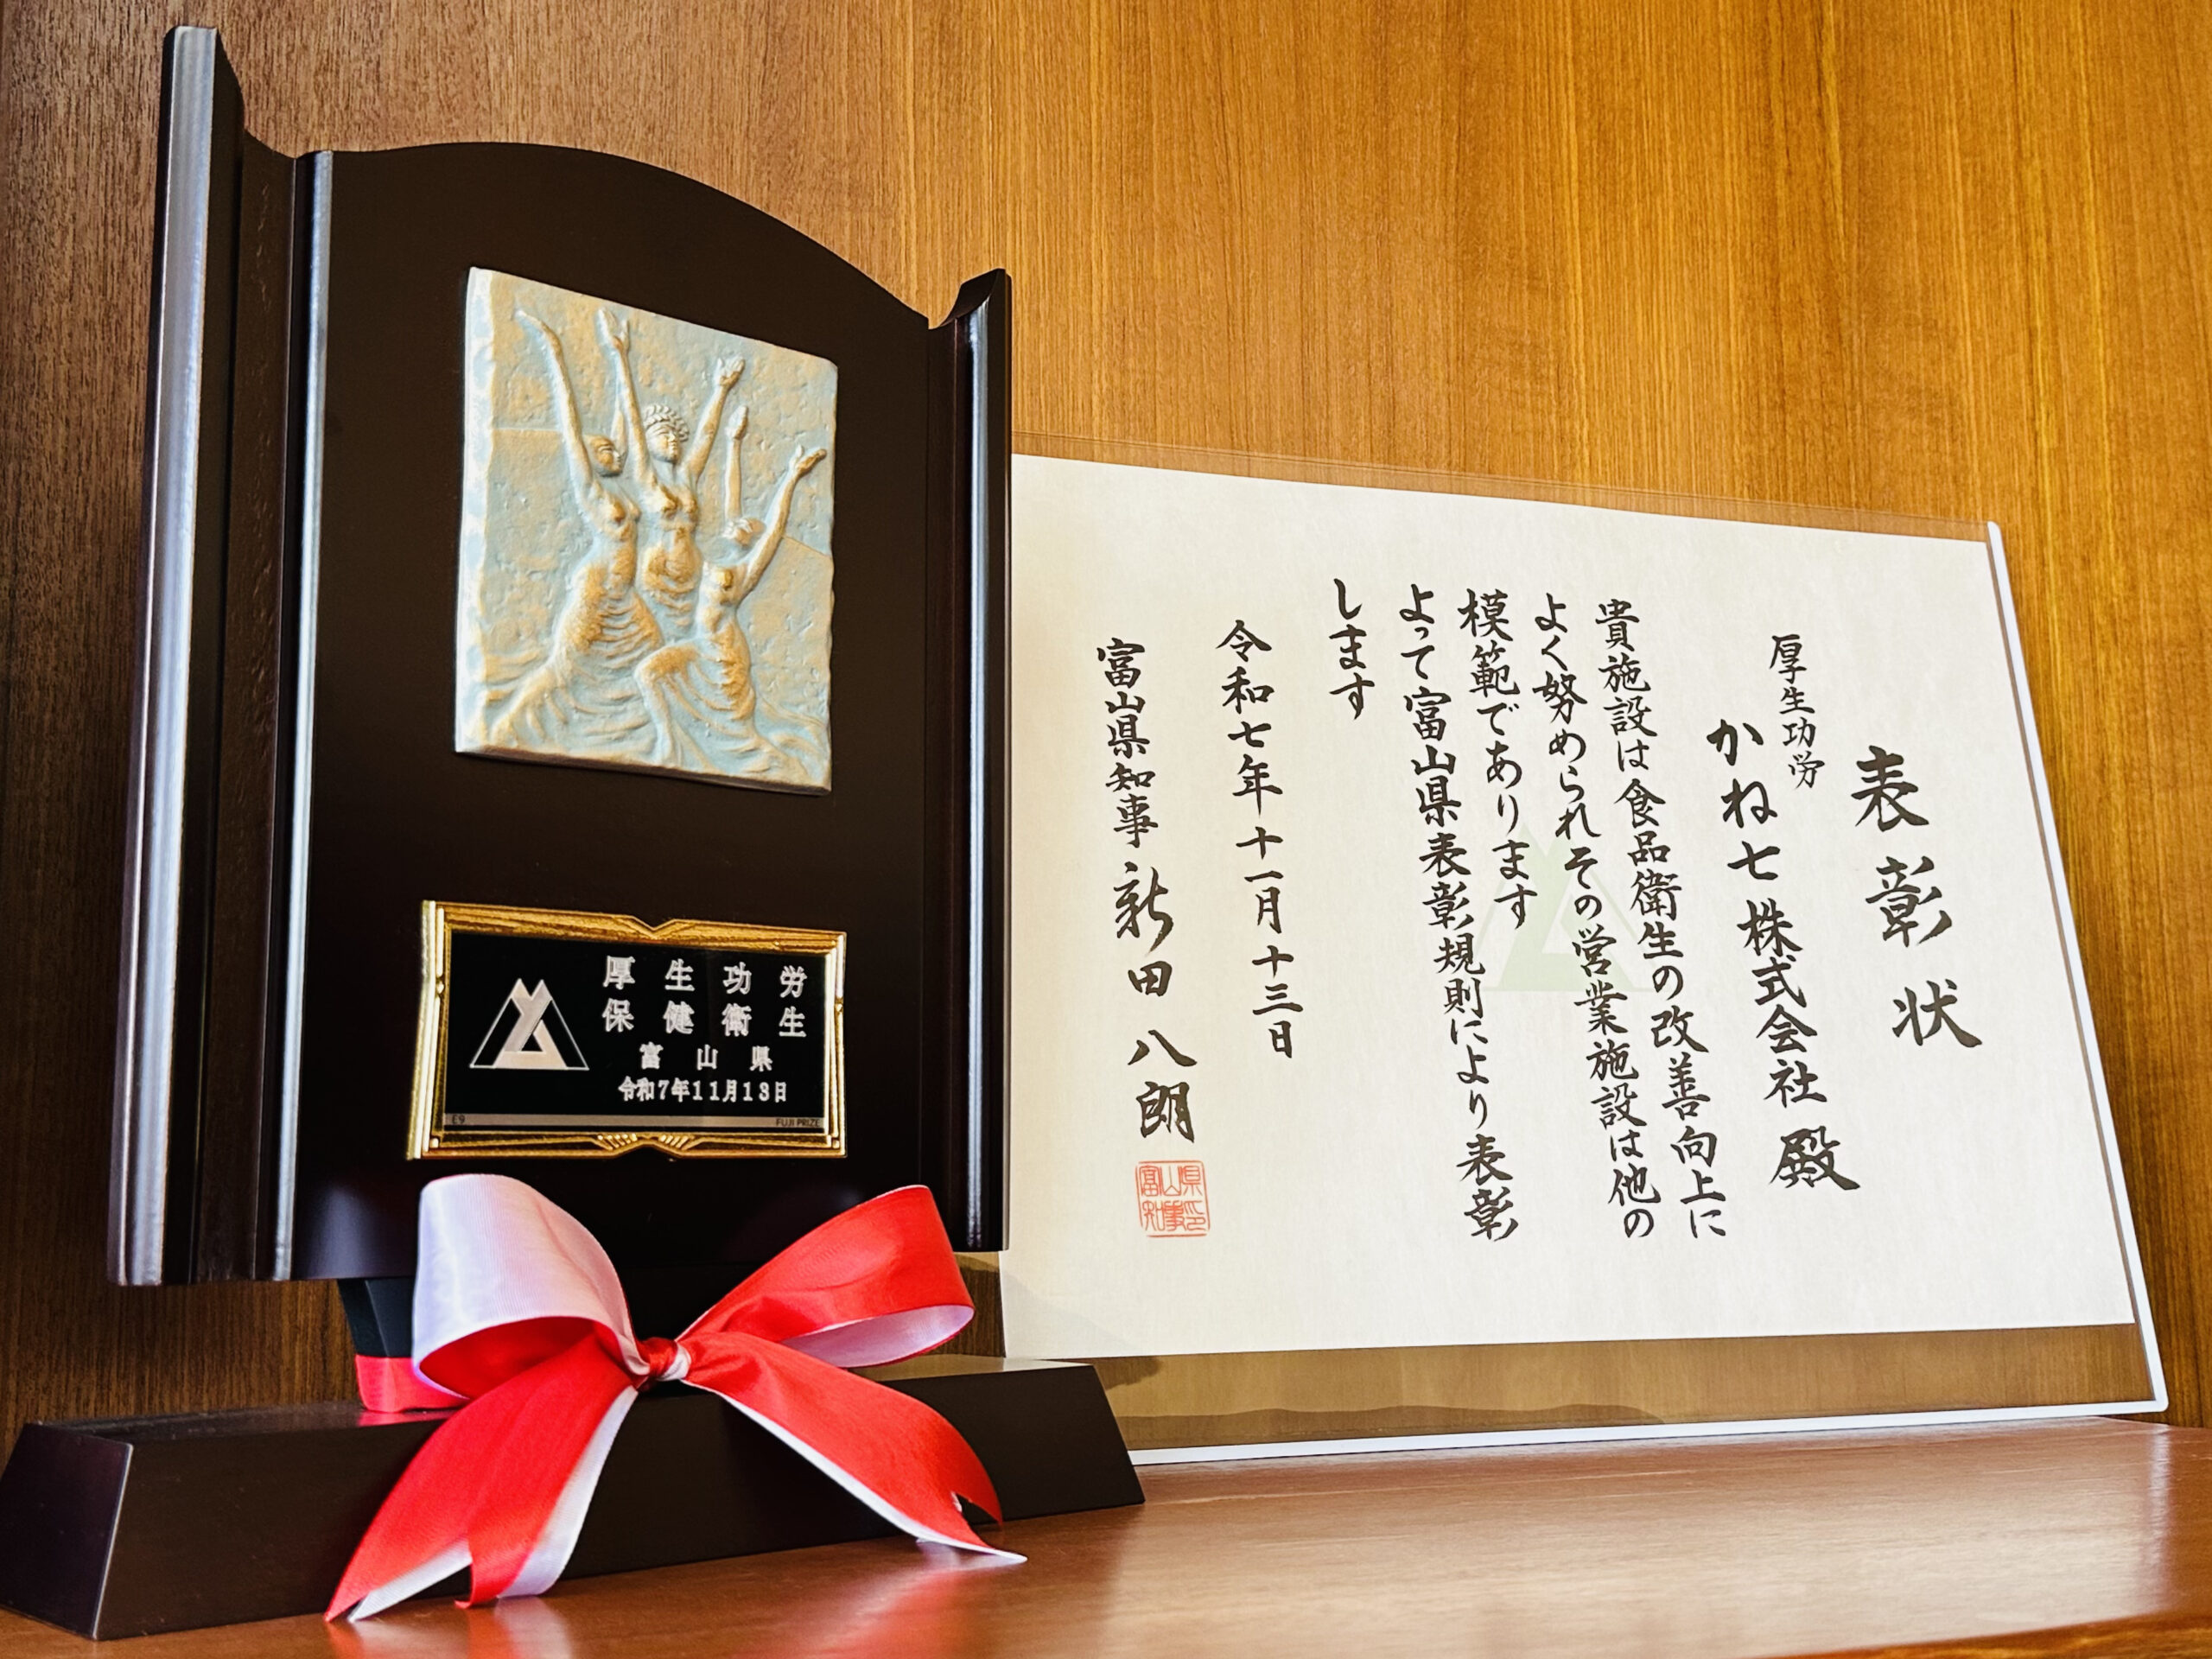 厚生功労
保健衛生
富山県
令和7年11月13日
E9
FUJI PRIZE
表彰状
厚生功労
かね七株式会社 殿
貴施設は食品衛生の改善向上に
よく努められその営業施設は他の
模範であります
よって富山県表彰規則により表彰
します
令和七年十一月十三日
富山県知事 新田八朗
富山県
知事印